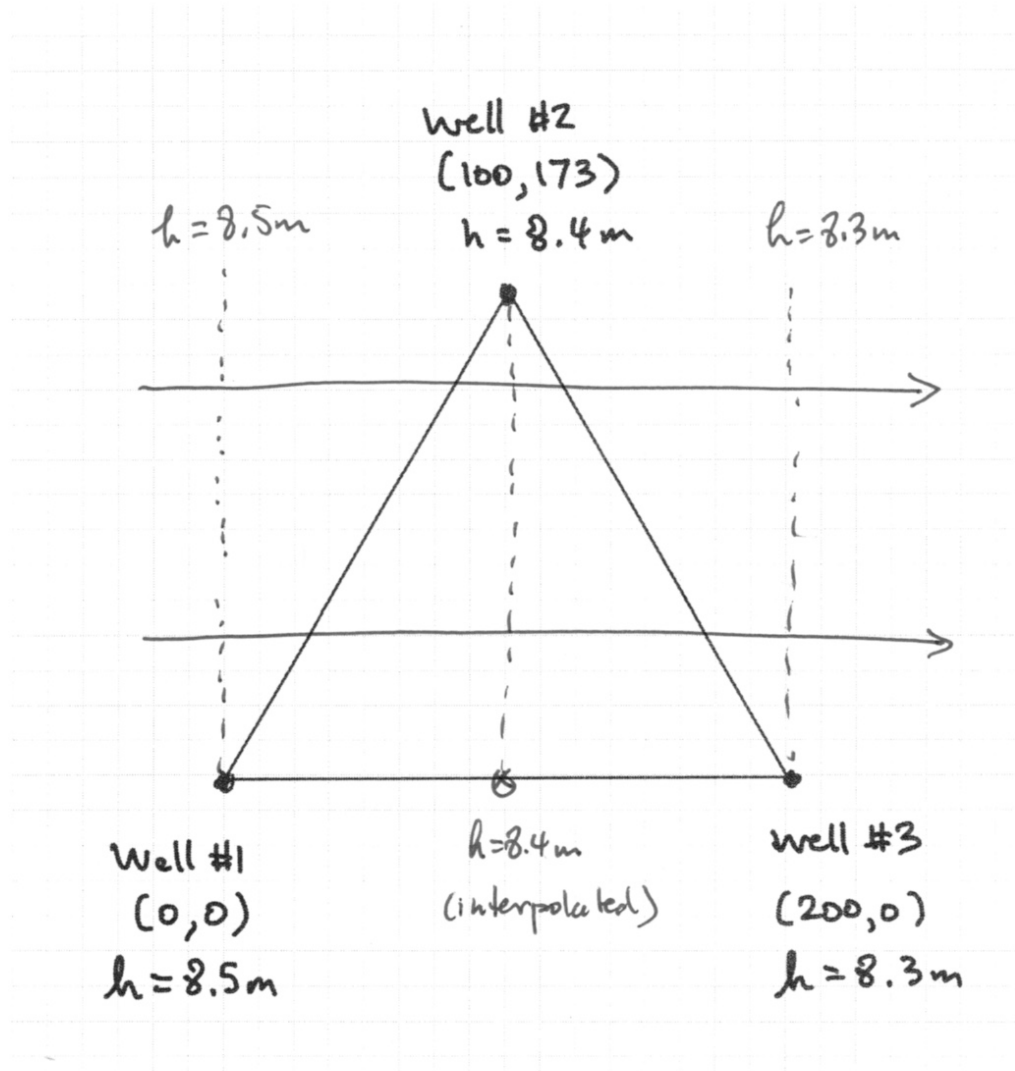 Well #2
(100,173)
h = 8.4 m
h = 8.5m
h = 8.3m
Well #1
(0,0)
h = 8.5m
h=8.4m
(interpolated)
Well #3
(200,0)
h = 8.3m